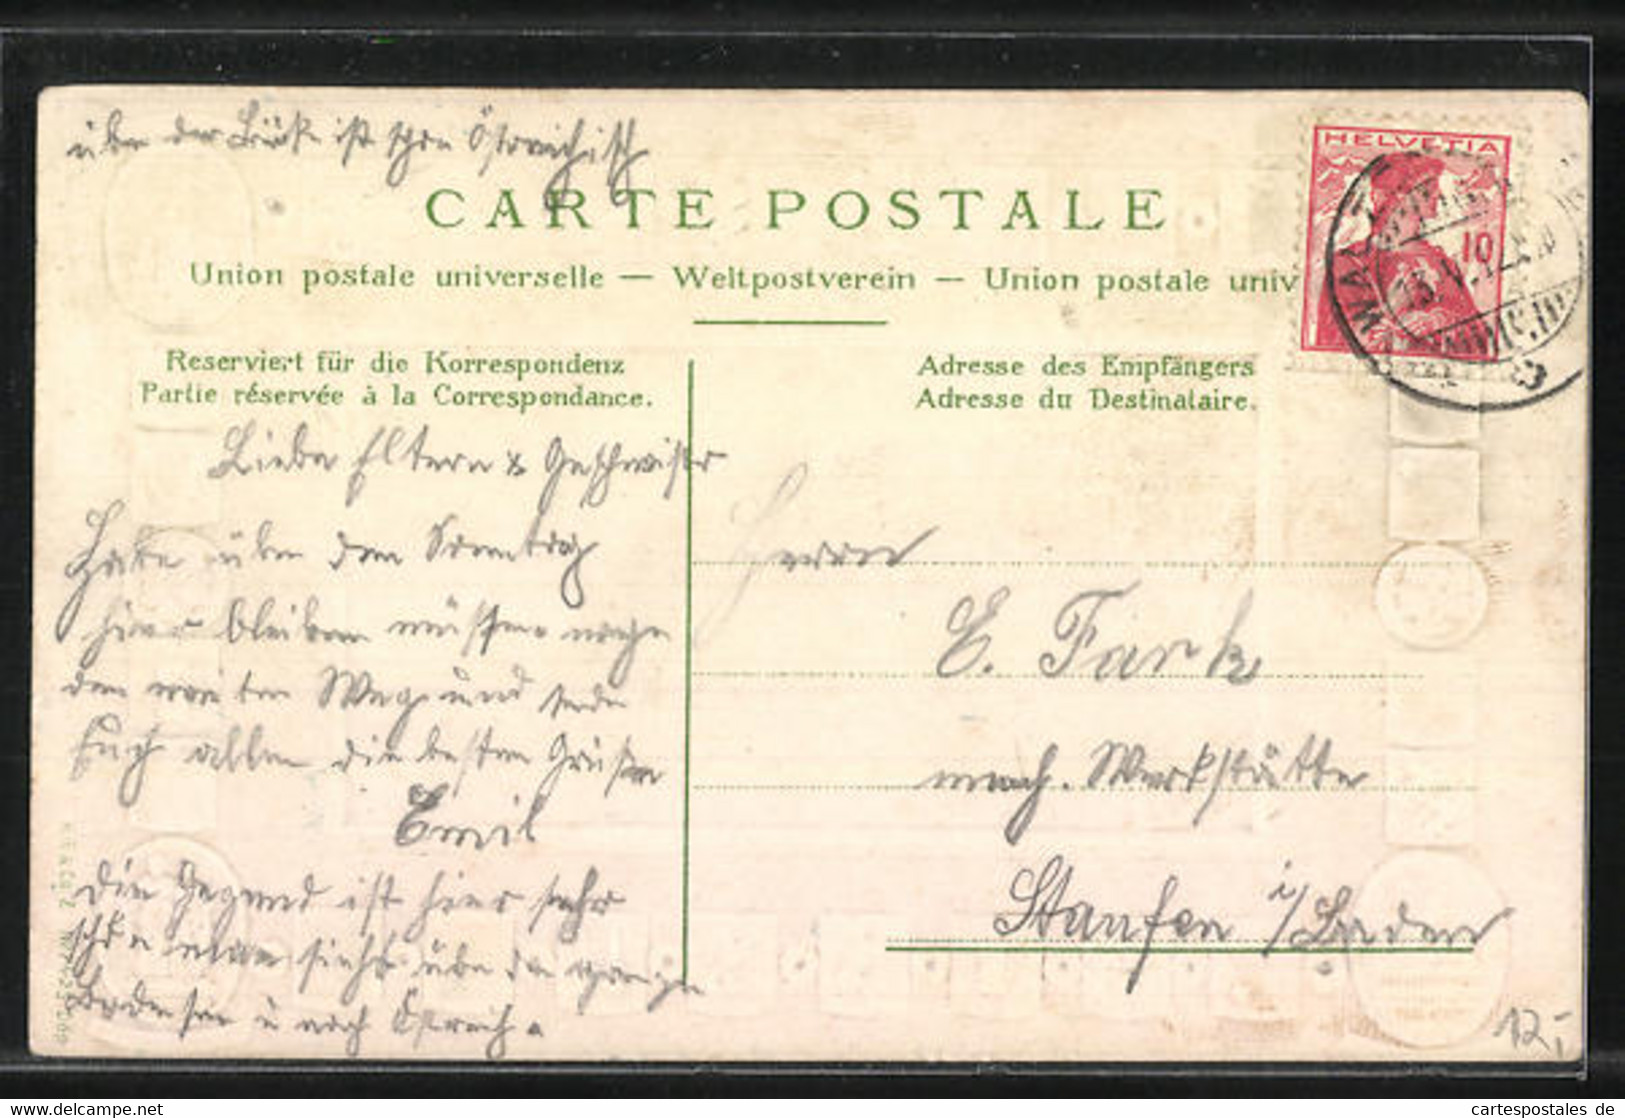 über der Brück ist schon Östreichisch
CARTE POSTALE
Union postale universelle — Weltpostverein — Union postale univ
HELVETIA
10
Reserviert für die Korrespondenz
Partie réservée à la Correspondance.
Adresse des Empfängers
Adresse du Destinataire.
Liebe Eltern & Geschwister
Habe über den Sonntag
hier bleiben müssen wegen
den weiten Weg und sende
Euch allen die besten Grüße
Emil
die Gegend ist hier sehr
schön man sieht über den ganzen
Bodensee u nach Östreich.
Herrn
E. Fark
mech. Werkstätte
Staufen i/Baden
12,-
cartespostales de